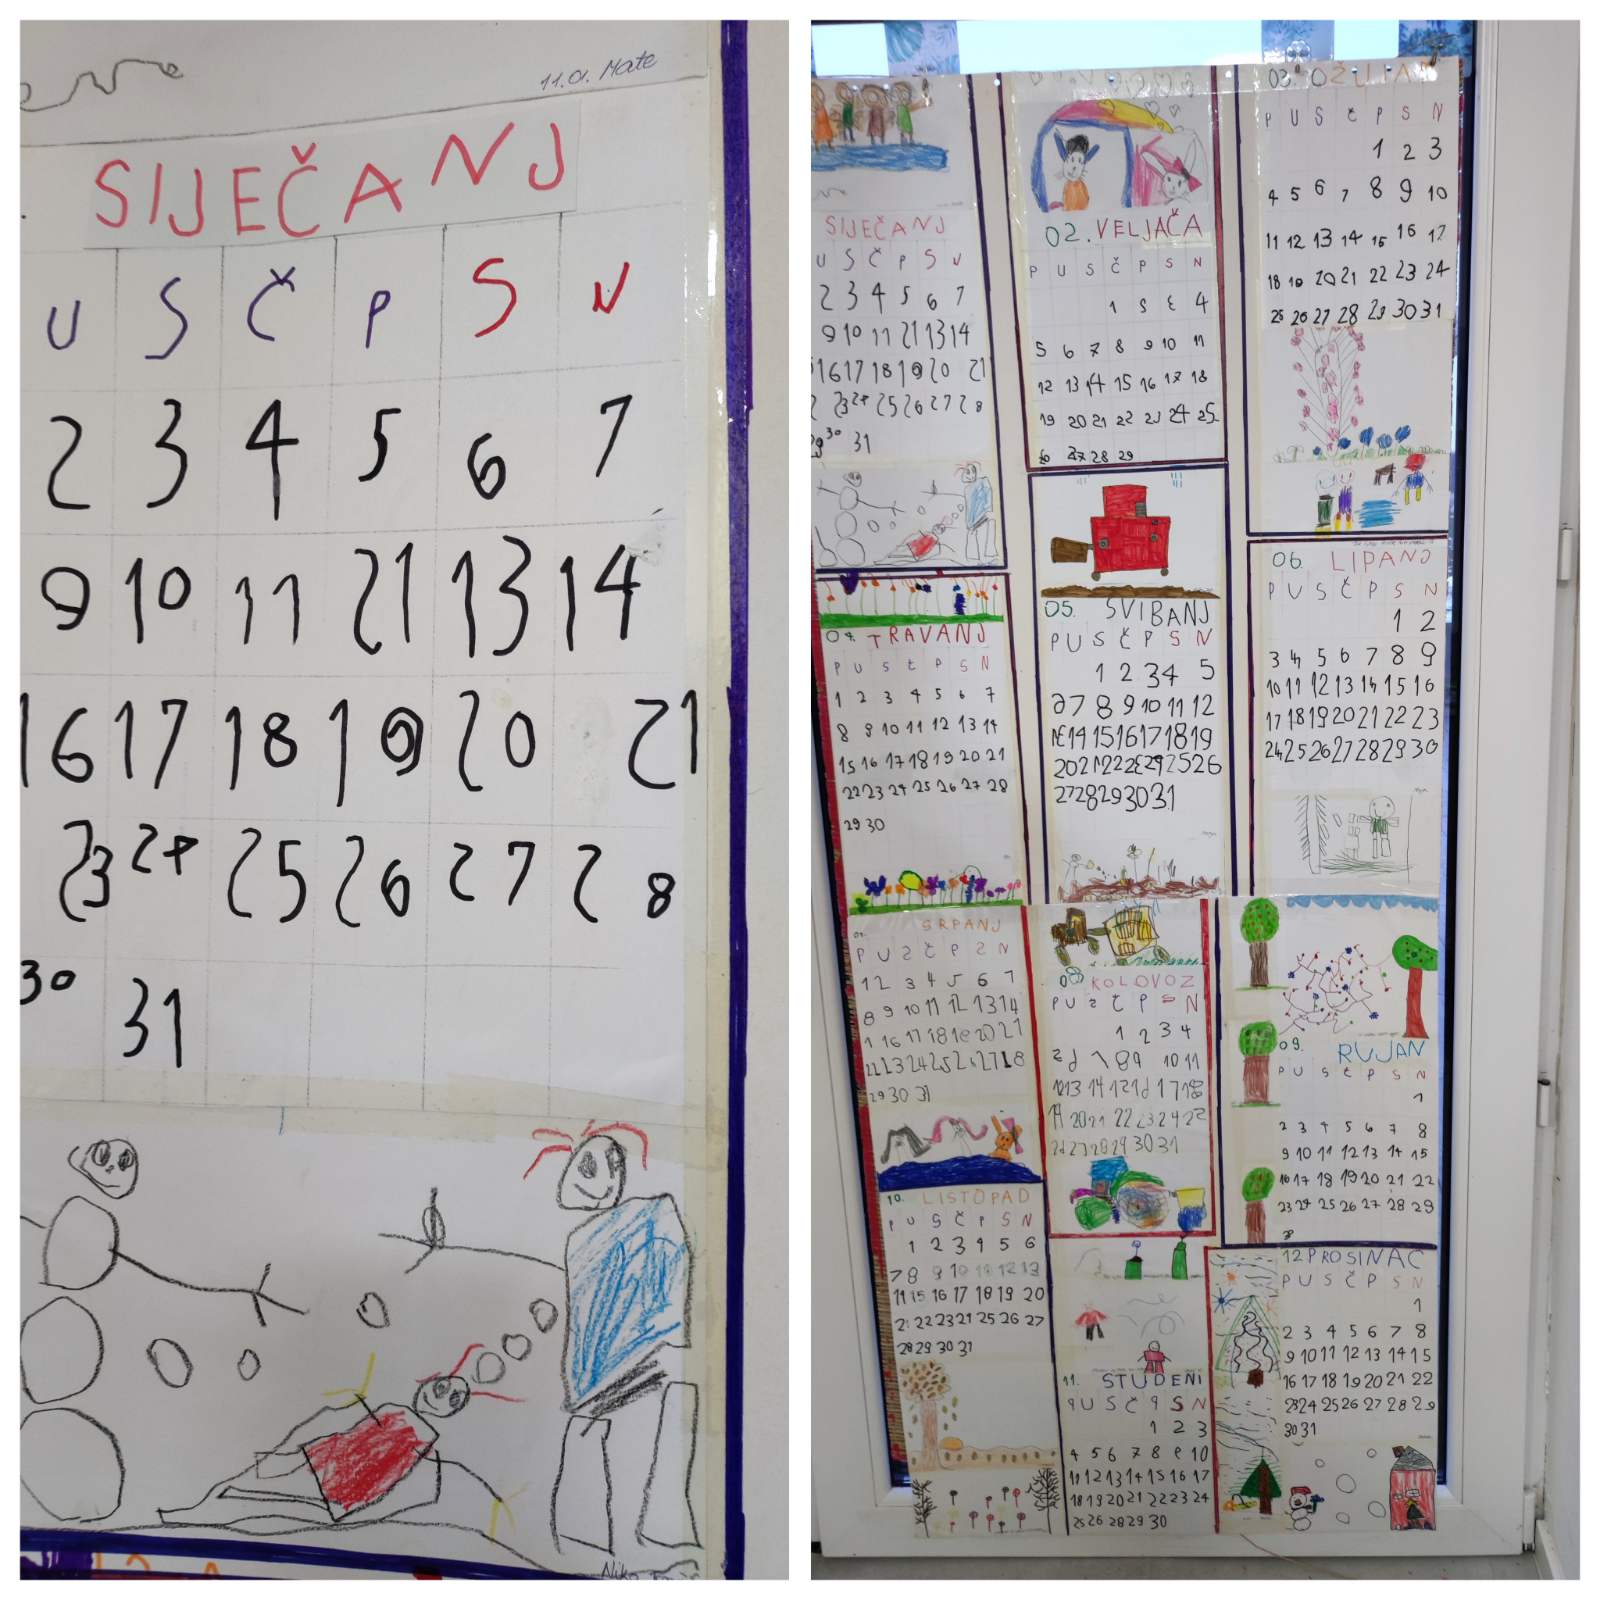 11.a. Mate
SIJEČANJ
U S Č P S N
2 3 4 5 6 7
9 10 11 21 13 14
16 17 18 19 20 21
23 24 25 26 27 28
30 31
Niko
SIJEČANJ
U S Č P S N
2 3 4 5 6 7
9 10 11 21 13 14
16 17 18 19 20 21
23 24 25 26 27 28
30 31
02. VELJAČA
P U S Č P S N
1 4
5 6 7 8 9 10 11
12 13 14 15 16 17 18
19 20 21 22 23 24 25
27 28 29
03. OŽUJAK
P U S Č P S N
1 2 3
4 5 6 7 8 9 10
11 12 13 14 15 16 17
18 19 20 21 22 23 24
25 26 27 28 29 30 31
04. TRAVANJ
P U S Č P S N
1 2 3 4 5 6 7
8 9 10 11 12 13 14
15 16 17 18 19 20 21
22 23 24 25 26 27 28
29 30
05. SVIBANJ
P U S Č P S N
1 2 3 4 5
6 7 8 9 10 11 12
13 14 15 16 17 18 19
20 21 22 23 24 25 26
27 28 29 30 31
06. LIPANJ
P U S Č P S N
1 2
3 4 5 6 7 8 9
10 11 12 13 14 15 16
17 18 19 20 21 22 23
24 25 26 27 28 29 30
SRPANJ
P U S Č P S N
1 2 3 4 5 6 7
8 9 10 11 12 13 14
16 17 18 19 20 21
23 24 25 26 27 28
29 30 31
08 KOLOVOZ
P U S Č P S N
1 2 3 4
8 9 10 11
13 14 17 18
19 20 21 22 23 24 25
27 28 29 30 31
09. RUJAN
P U S Č P S N
1
2 3 4 5 6 7 8
9 10 11 12 13 14 15
16 17 18 19 20 21 22
23 24 25 26 27 28 29
30
10. LISTOPAD
P U S Č P S N
1 2 3 4 5 6
7 8 9 10 11 12 13
14 15 16 17 18 19 20
22 23 21 25 26 27
28 29 30 31
11. STUDENI
P U S Č P S N
1 2 3
4 5 6 7 8 9 10
11 12 13 14 15 16 17
18 19 20 21 22 23 24
25 26 28 29 30
12 PROSINAC
P U S Č P S N
1
2 3 4 5 6 7 8
9 10 11 12 13 14 15
16 17 18 19 20 21 22
23 24 25 26 27 28 29
30 31